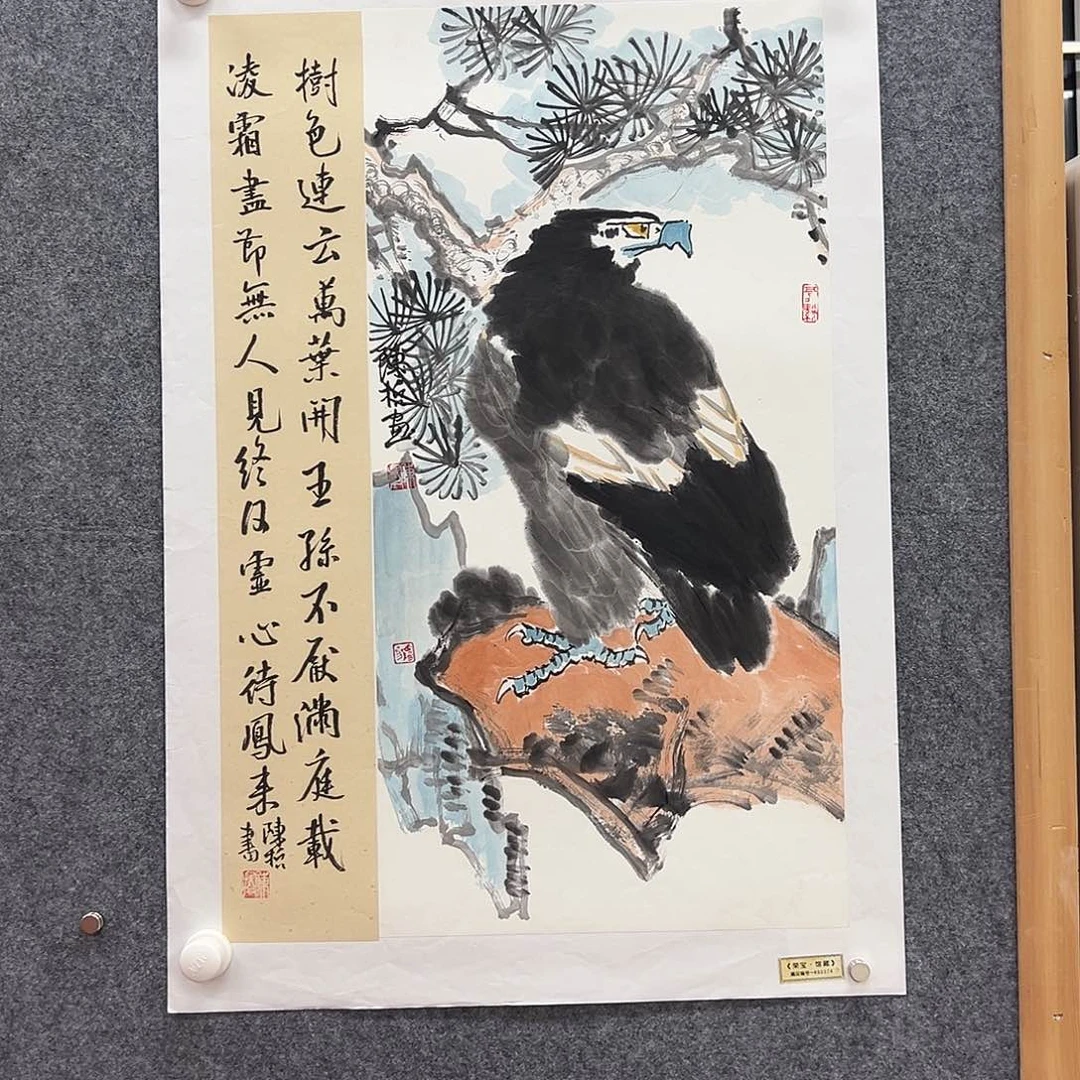 陳 畫
樹色連云萬葉開王孫不厭滿庭載
凌霜盡節無人見終日虛心待鳳來
陳
書
《荣宝·馆藏》